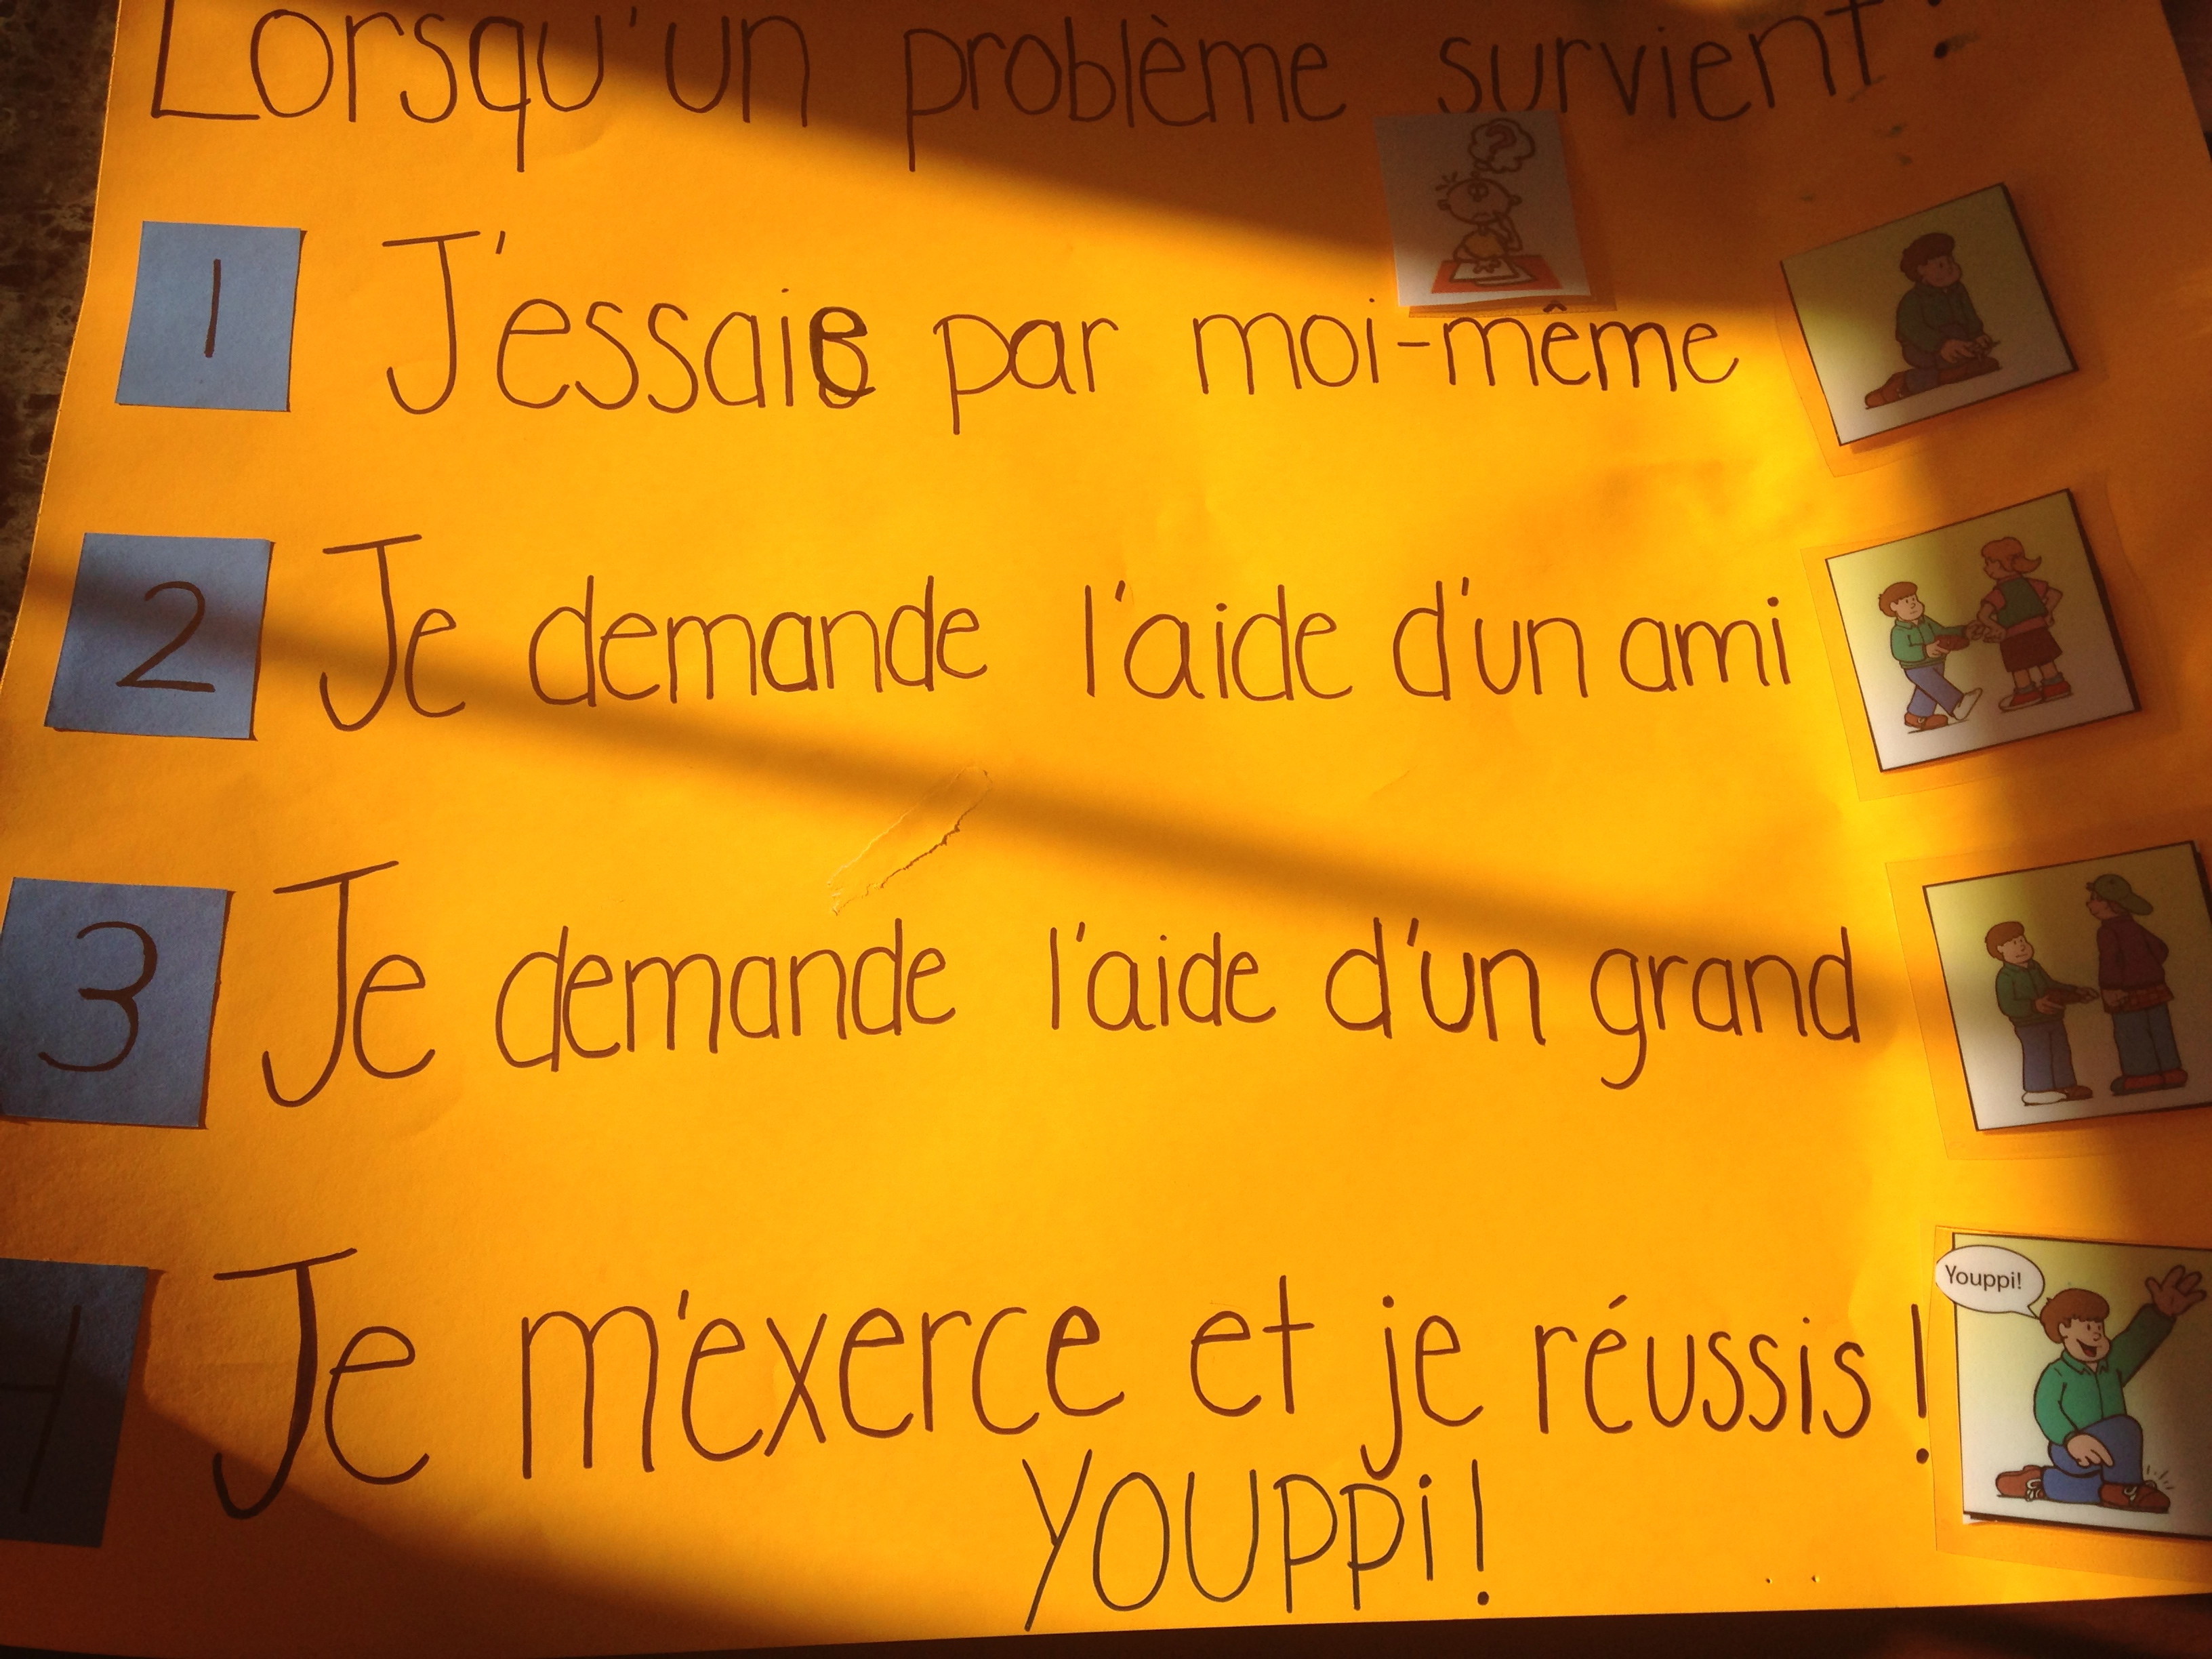 Lorsqu'un problème survient :
?
1 J'essaie par moi-même
2 Je demande l'aide d'un ami
3 Je demande l'aide d'un grand
4 Je m'exerce et je réussis !
Youppi!
YOUPPi !